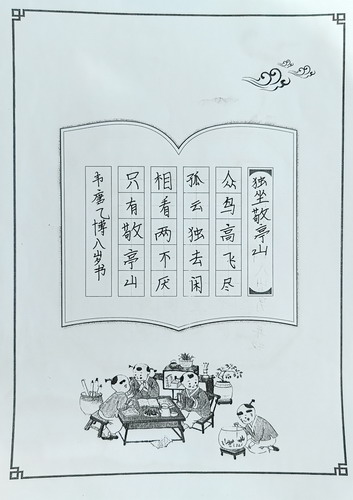 独坐敬亭山
众鸟高飞尽
孤云独去闲
相看两不厌
只有敬亭山
韦唐乙博八岁书